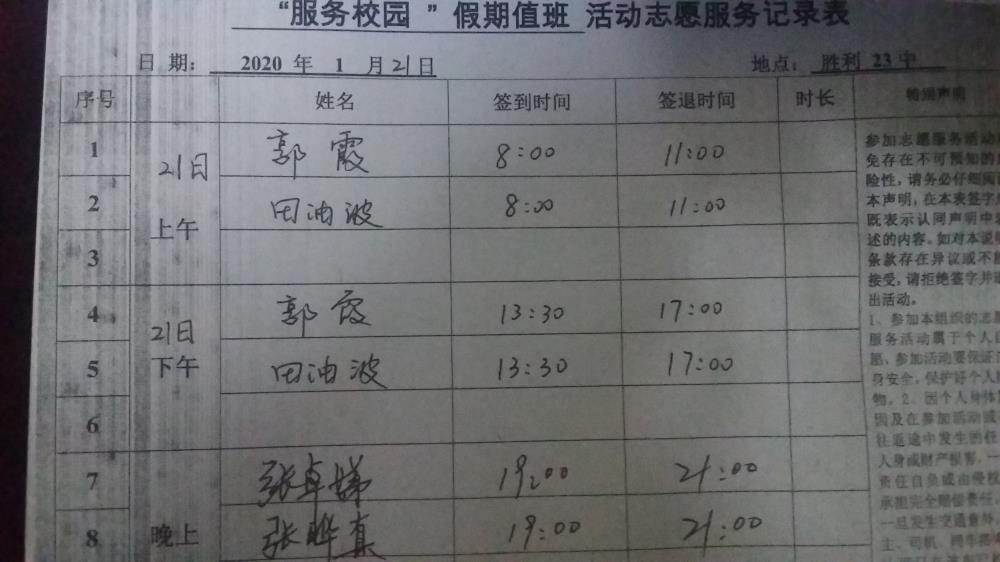 “服务校园 ” 假期值班 活动志愿服务记录表
日 期： 2020 年 1 月21日 地点： 胜利 23 中
序号 姓名 签到时间 签退时间 时长 特别声明
1 21日 郭 霞 8:00 11:00
2 上午 田油波 8:00 11:00
3
4 21日 郭 霞 13:30 17:00
5 下午 田油波 13:30 17:00
6
7 张卓娣 19:00 21:00
8 晚上 张晔真 19:00 21:00
参加志愿服务活动
免存在不可预知的
险性，请务必仔细阅
本声明，在本表签字
既表示认同声明中
述的内容。如对本说
条款存在异议或不
接受，请拒绝签字并
出活动。
1、参加本组织的志
服务活动属于个人
愿，参加活动要保证
身安全，保护好个人
物。2、因个人身体
因及在参加活动或
往返途中发生的任
人身或财产损害，一
责任自负或由侵权
承担完全赔偿责任
一旦发生交通意外
主、司机、同车